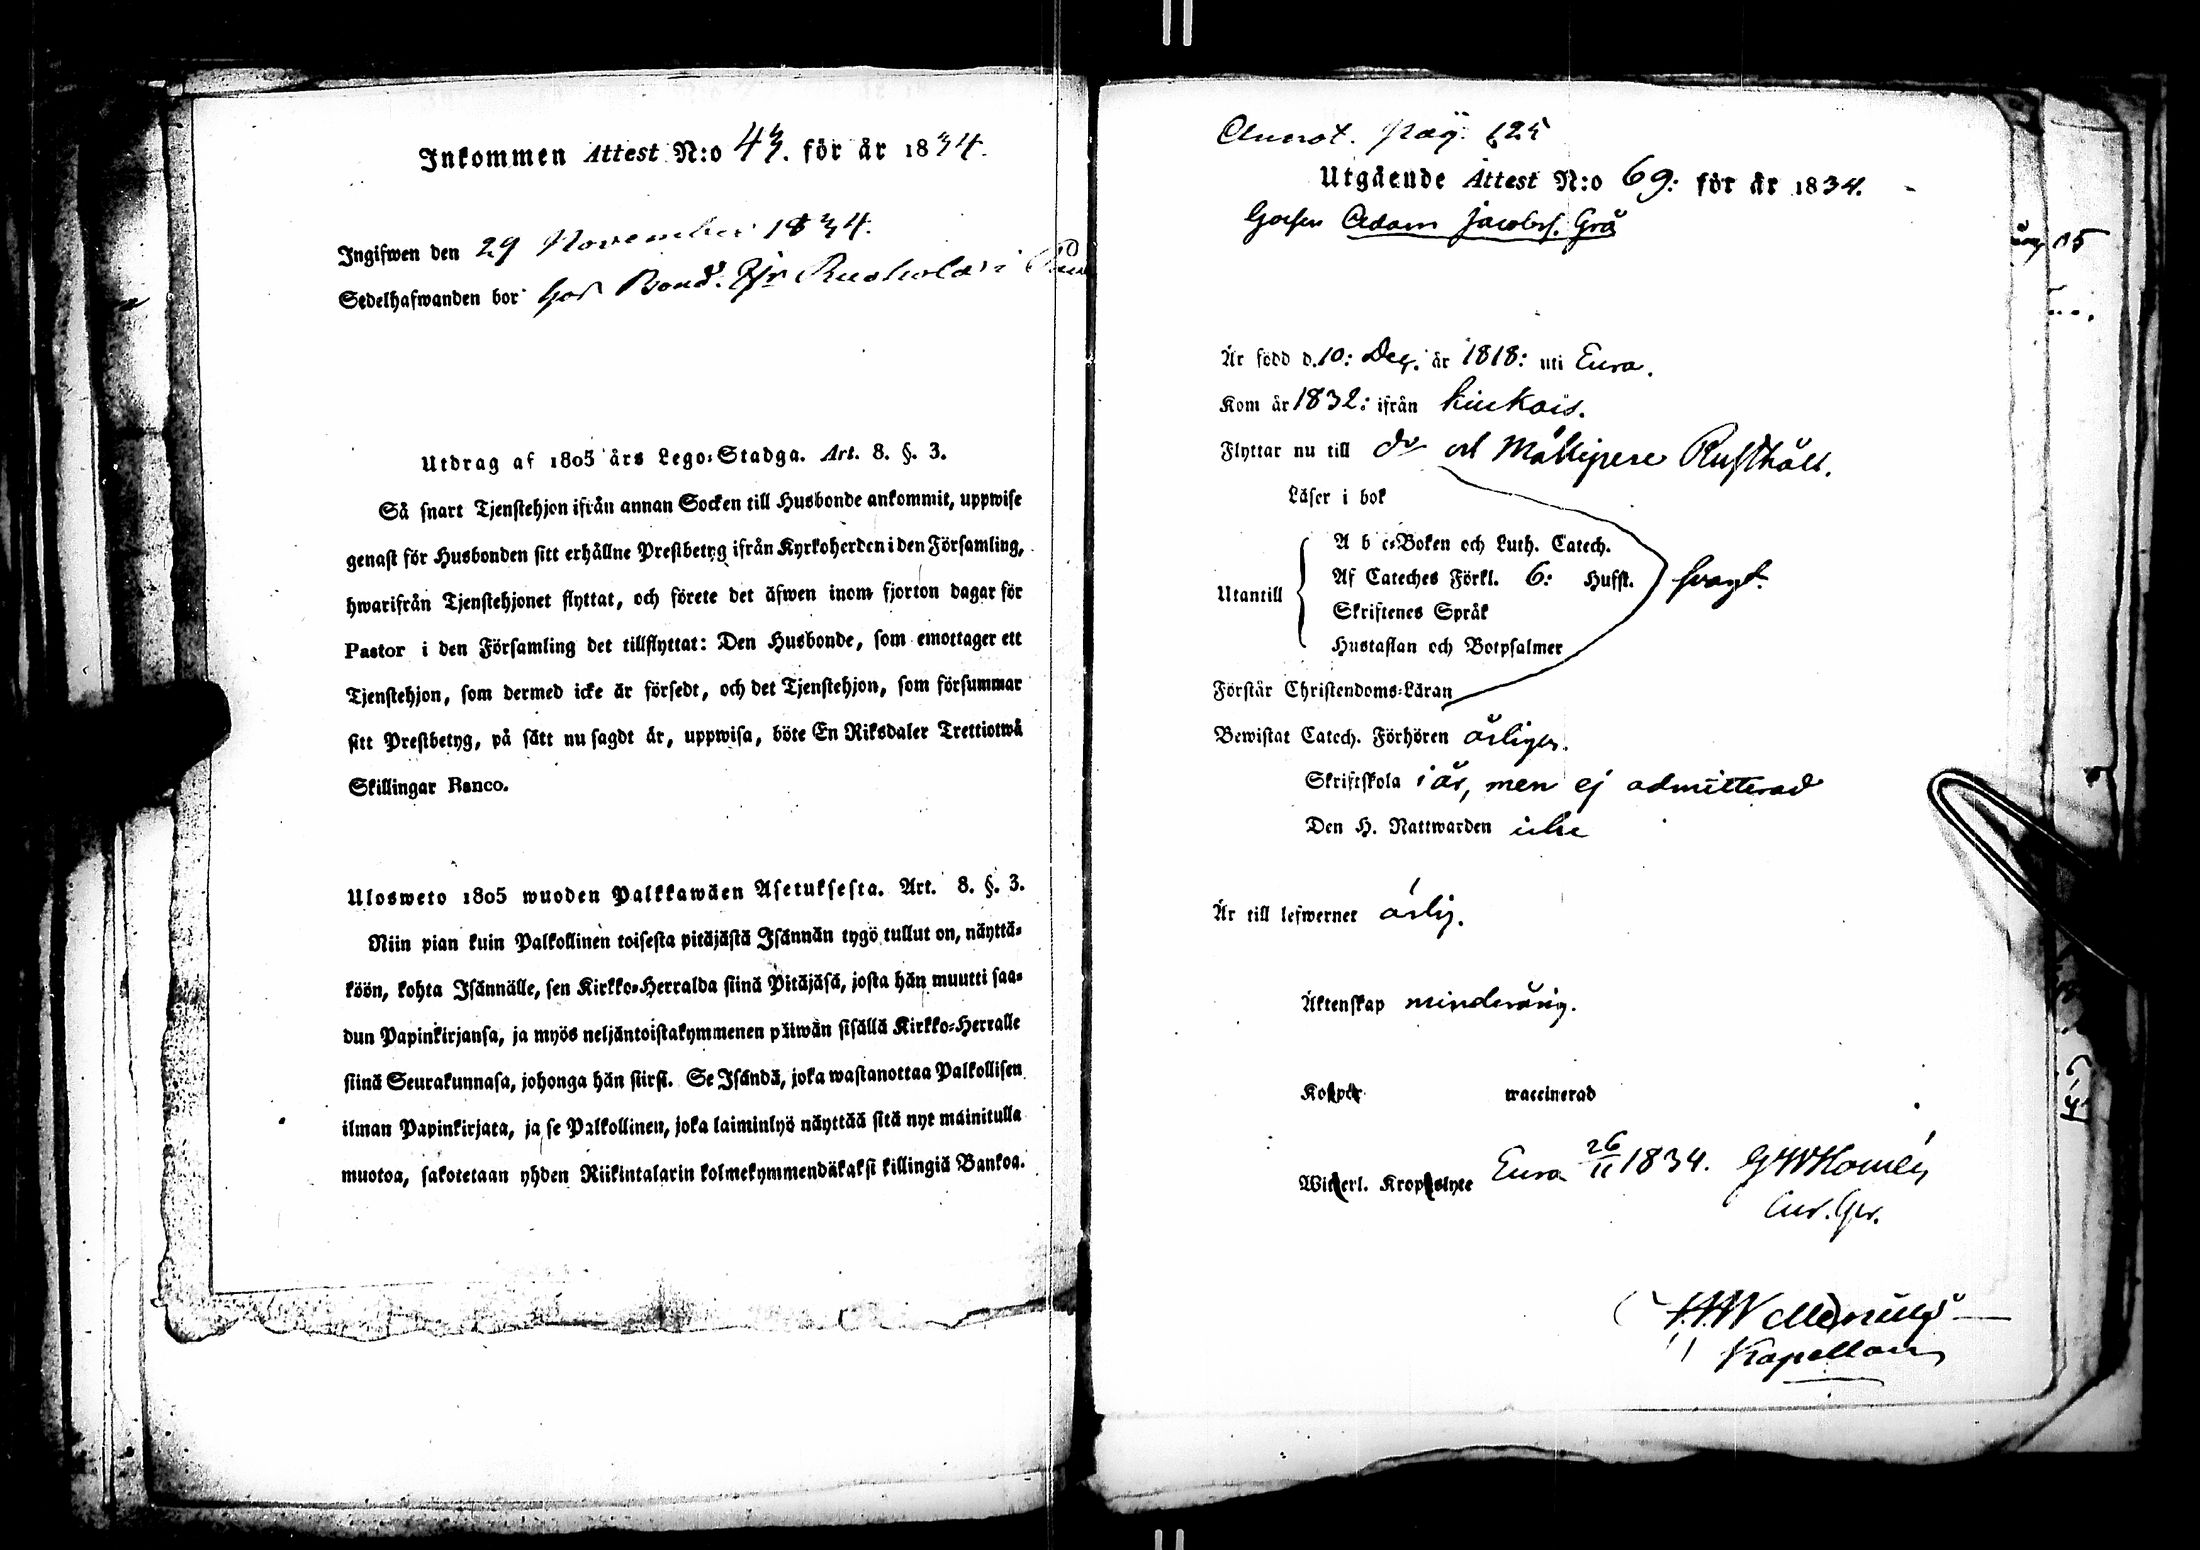 Inkommen Attest N:o 43. för år 1834.
Ingifwen den 29 November 1834.
Sedelhafwanden bor hos Bond.
Utdrag af 1805 års Lego-Stadga. Art. 8. §. 3.
Så snart Tjenstehjon ifrån annan Socken till Husbonde ankommit, uppwise
genast för Husbonden sitt erhållne Prestbetyg ifrån Kyrkoherden i den Församling,
hwarifrån Tjenstehjonet flyttat, och förete det äfwen inom fjorton dagar för
Pastor i den Församling det tillflyttat: Den Husbonde, som emottager ett
Tjenstehjon, som dermed icke är försedt, och det Tjenstehjon, som försummar
sitt Prestbetyg, på sätt nu sagdt är, uppwisa, böte En Riksdaler Trettiotwå
Skillingar Banco.
Ulosweto 1805 wuoden Palkkawäen Asetuksesta. Art. 8. §. 3.
Niin pian kuin Palkollinen toisesta pitäjästä Isännän tygö tullut on, näyttä-
köön, kohta Isännälle, sen Kirkko-Herralda siinä Pitäjäsä, josta hän muutti saa-
dun Papinkirjansa, ja myös neljäntoistakymmenen päiwän sisällä Kirkko-Herralle
siinä Seurakunnasa, johonga hän siirsi. Se Isändä, joka wastanottaa Palkollisen
ilman Papinkirjata, ja se Palkollinen, joka laiminlyö näyttää sitä nyt mainitulla
muotoa, sakotetaan yhden Riikintalarin kolmekymmendäkaksi killingiä Bankoa.
Annot. pag. 125
Utgående Attest N:o 69: för år 1834.
Gossen Adam Jacobss. Grå
Är född d. 10: Dec. år 1818: uti Eura.
Kom år 1832: ifrån Kiukais.
Flyttar nu till do och Mällipere Rusthåll.
Läser i bok
A b c-Boken och Luth. Catech.
Utantill Af Cateches Förkl. 6: Hufst. svagt.
Skriftenes Språk
Hustaflan och Botpsalmer
Förstår Christendoms-Läran
Bewistat Catech. Förhören årligen.
Skriftskola i år, men ej admitterad
Den H. Nattwarden icke
Är till lefwernet ärlig.
Äktenskap minderårig.
Koppor waccinerad
Witterl. Kroppslyte Eura 26/11 1834.
Kapellan